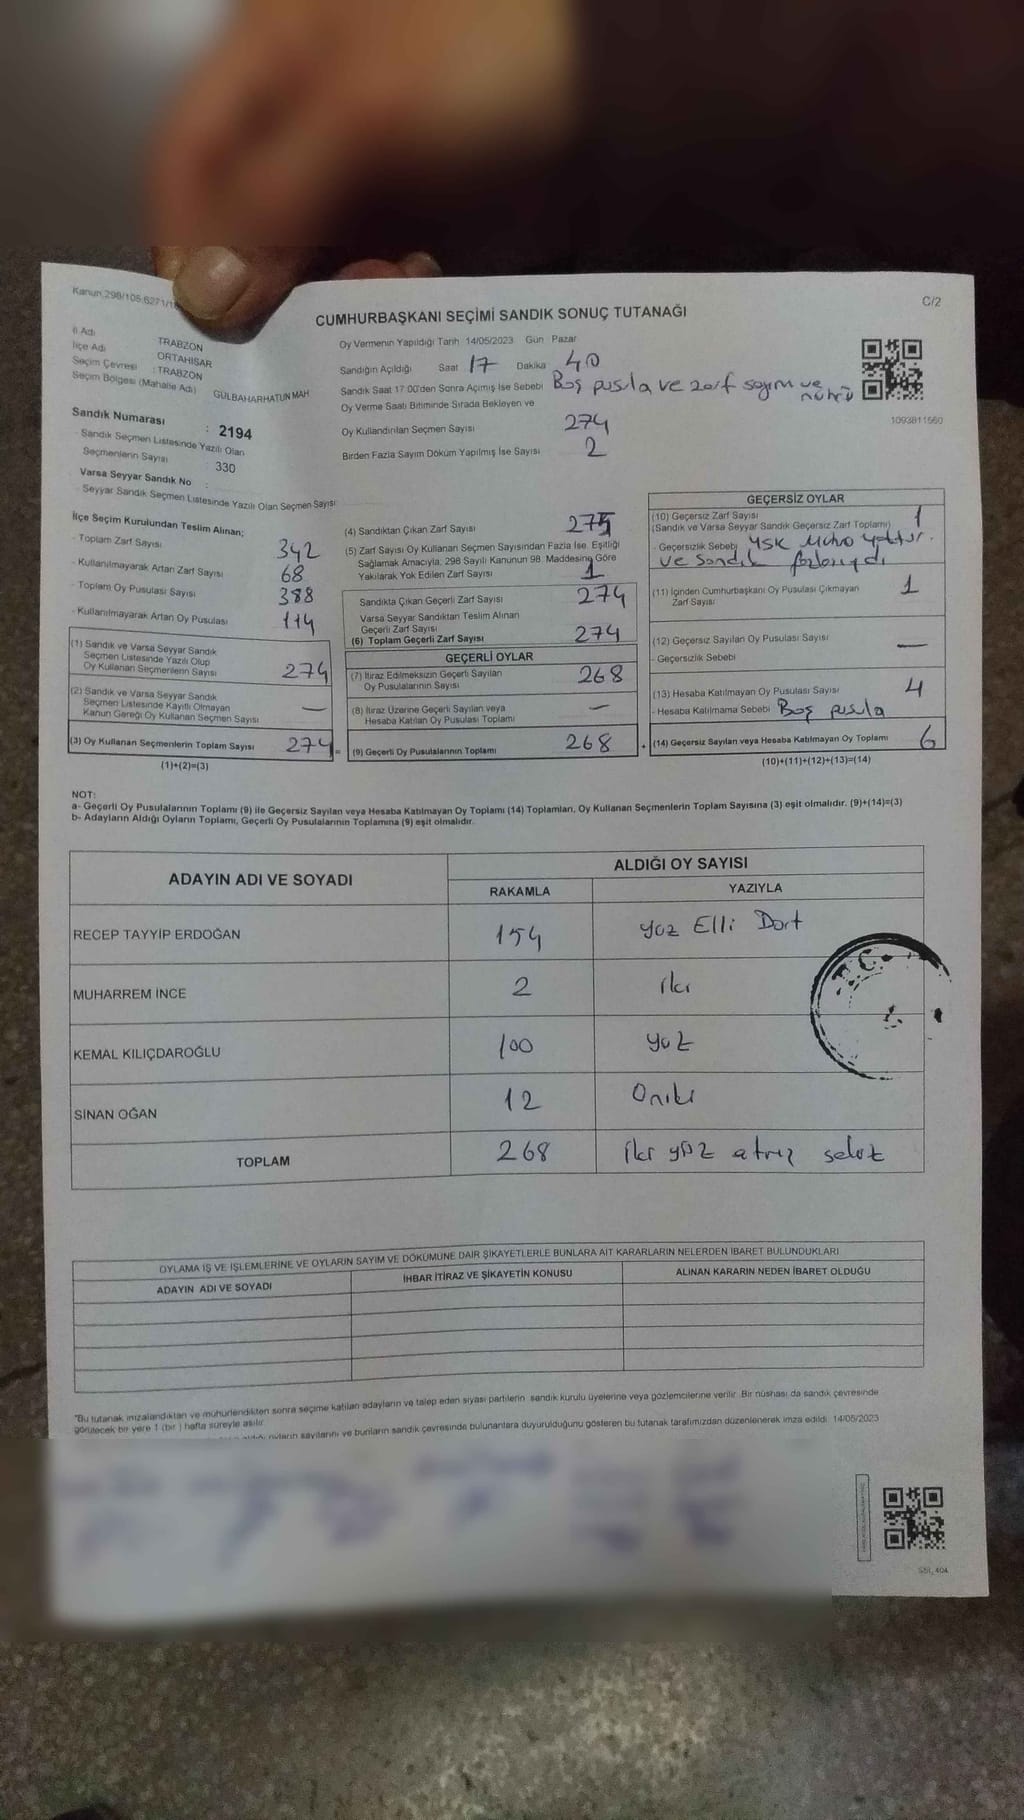 Kanun:298/105,6271/1
C/2
CUMHURBAŞKANI SEÇİMİ SANDIK SONUÇ TUTANAĞI
İl Adı
TRABZON
İlçe Adı
ORTAHİSAR
Seçim Çevresi :TRABZON
Seçim Bölgesi (Mahalle Adı) GÜLBAHARHATUN MAH
Sandık Numarası : 2194
- Sandık Seçmen Listesinde Yazılı Olan
Seçmenlerin Sayısı : 330
Varsa Seyyar Sandık No :
- Seyyar Sandık Seçmen Listesinde Yazılı Olan Seçmen Sayısı
Oy Vermenin Yapıldığı Tarih 14/05/2023 Gün Pazar
Sandığın Açıldığı Saat 17 Dakika 40
Sandık Saat 17:00'den Sonra Açımış İse Sebebi Boş pusula ve zarf sayım ve
mührü
Oy Verme Saati Bitiminde Sırada Bekleyen ve
Oy Kullandırılan Seçmen Sayısı 274
Birden Fazla Sayım Döküm Yapılmış İse Sayısı 2
1093811560
İlçe Seçim Kurulundan Teslim Alınan;
- Toplam Zarf Sayısı 342
- Kullanılmayarak Artan Zarf Sayısı 68
- Toplam Oy Pusulası Sayısı 388
- Kullanılmayarak Artan Oy Pusulası 114
(1) Sandık ve Varsa Seyyar Sandık
Seçmen Listesinde Yazılı Olup
Oy Kullanan Seçmenlerin Sayısı 274
(2) Sandık ve Varsa Seyyar Sandık
Seçmen Listesinde Kayıtlı Olmayan
Kanun Gereği Oy Kullanan Seçmen Sayısı —
(3) Oy Kullanan Seçmenlerin Toplam Sayısı 274 =
(1)+(2)=(3)
(4) Sandıktan Çıkan Zarf Sayısı 275
(5) Zarf Sayısı Oy Kullanan Seçmen Sayısından Fazla İse, Eşitliği
Sağlamak Amacıyla, 298 Sayılı Kanunun 98. Maddesine Göre
Yakılarak Yok Edilen Zarf Sayısı 1
Sandıkta Çıkan Geçerli Zarf Sayısı 274
Varsa Seyyar Sandıktan Teslim Alınan
Geçerli Zarf Sayısı
(6) Toplam Geçerli Zarf Sayısı 274
GEÇERLİ OYLAR
(7) İtiraz Edilmeksizin Geçerli Sayılan
Oy Pusulalarının Sayısı 268
(8) İtiraz Üzerine Geçerli Sayılan veya
Hesaba Katılan Oy Pusulası Toplamı —
(9) Geçerli Oy Pusulalarının Toplamı 268 +
GEÇERSİZ OYLAR
(10) Geçersiz Zarf Sayısı 1
(Sandık ve Varsa Seyyar Sandık Geçersiz Zarf Toplamı)
- Geçersizlik Sebebi YSK Mührü yoktur.
ve sandık fazlasıydı
(11) İçinden Cumhurbaşkanı Oy Pusulası Çıkmayan 1
Zarf Sayısı
(12) Geçersiz Sayılan Oy Pusulası Sayısı —
- Geçersizlik Sebebi
(13) Hesaba Katılmayan Oy Pusulası Sayısı 4
- Hesaba Katılmama Sebebi Boş pusula
(14) Geçersiz Sayılan veya Hesaba Katılmayan Oy Toplamı 6
(10)+(11)+(12)+(13)=(14)
NOT:
a- Geçerli Oy Pusulalarının Toplamı (9) ile Geçersiz Sayılan veya Hesaba Katılmayan Oy Toplamı (14) Toplamları, Oy Kullanan Seçmenlerin Toplam Sayısına (3) eşit olmalıdır. (9)+(14)=(3)
b- Adayların Aldığı Oyların Toplamı, Geçerli Oy Pusulalarının Toplamına (9) eşit olmalıdır.
ADAYIN ADI VE SOYADI
ALDIĞI OY SAYISI
RAKAMLA YAZIYLA
RECEP TAYYİP ERDOĞAN 154 yüz Elli Dört
MUHARREM İNCE 2 iki
KEMAL KILIÇDAROĞLU 100 yüz
SİNAN OĞAN 12 Oniki
TOPLAM 268 iki yüz atmış sekiz
OYLAMA İŞ VE İŞLEMLERİNE VE OYLARIN SAYIM VE DÖKÜMÜNE DAİR ŞİKAYETLERLE BUNLARA AİT KARARLARIN NELERDEN İBARET BULUNDUKLARI
ADAYIN ADI VE SOYADI İHBAR İTİRAZ VE ŞİKAYETİN KONUSU ALINAN KARARIN NEDEN İBARET OLDUĞU
"Bu tutanak imzalandıktan ve mühürlendikten sonra seçime katılan adayların ve talep eden siyasi partilerin sandık kurulu üyelerine veya gözlemcilerine verilir. Bir nüshası da sandık çevresinde
görülecek bir yere 1 (bir ) hafta süreyle asılır.
oyların sayılarını ve bunların sandık çevresinde bulunanlara duyurulduğunu gösteren bu tutanak tarafımızdan düzenlenerek imza edildi. 14/05/2023
SSI_404